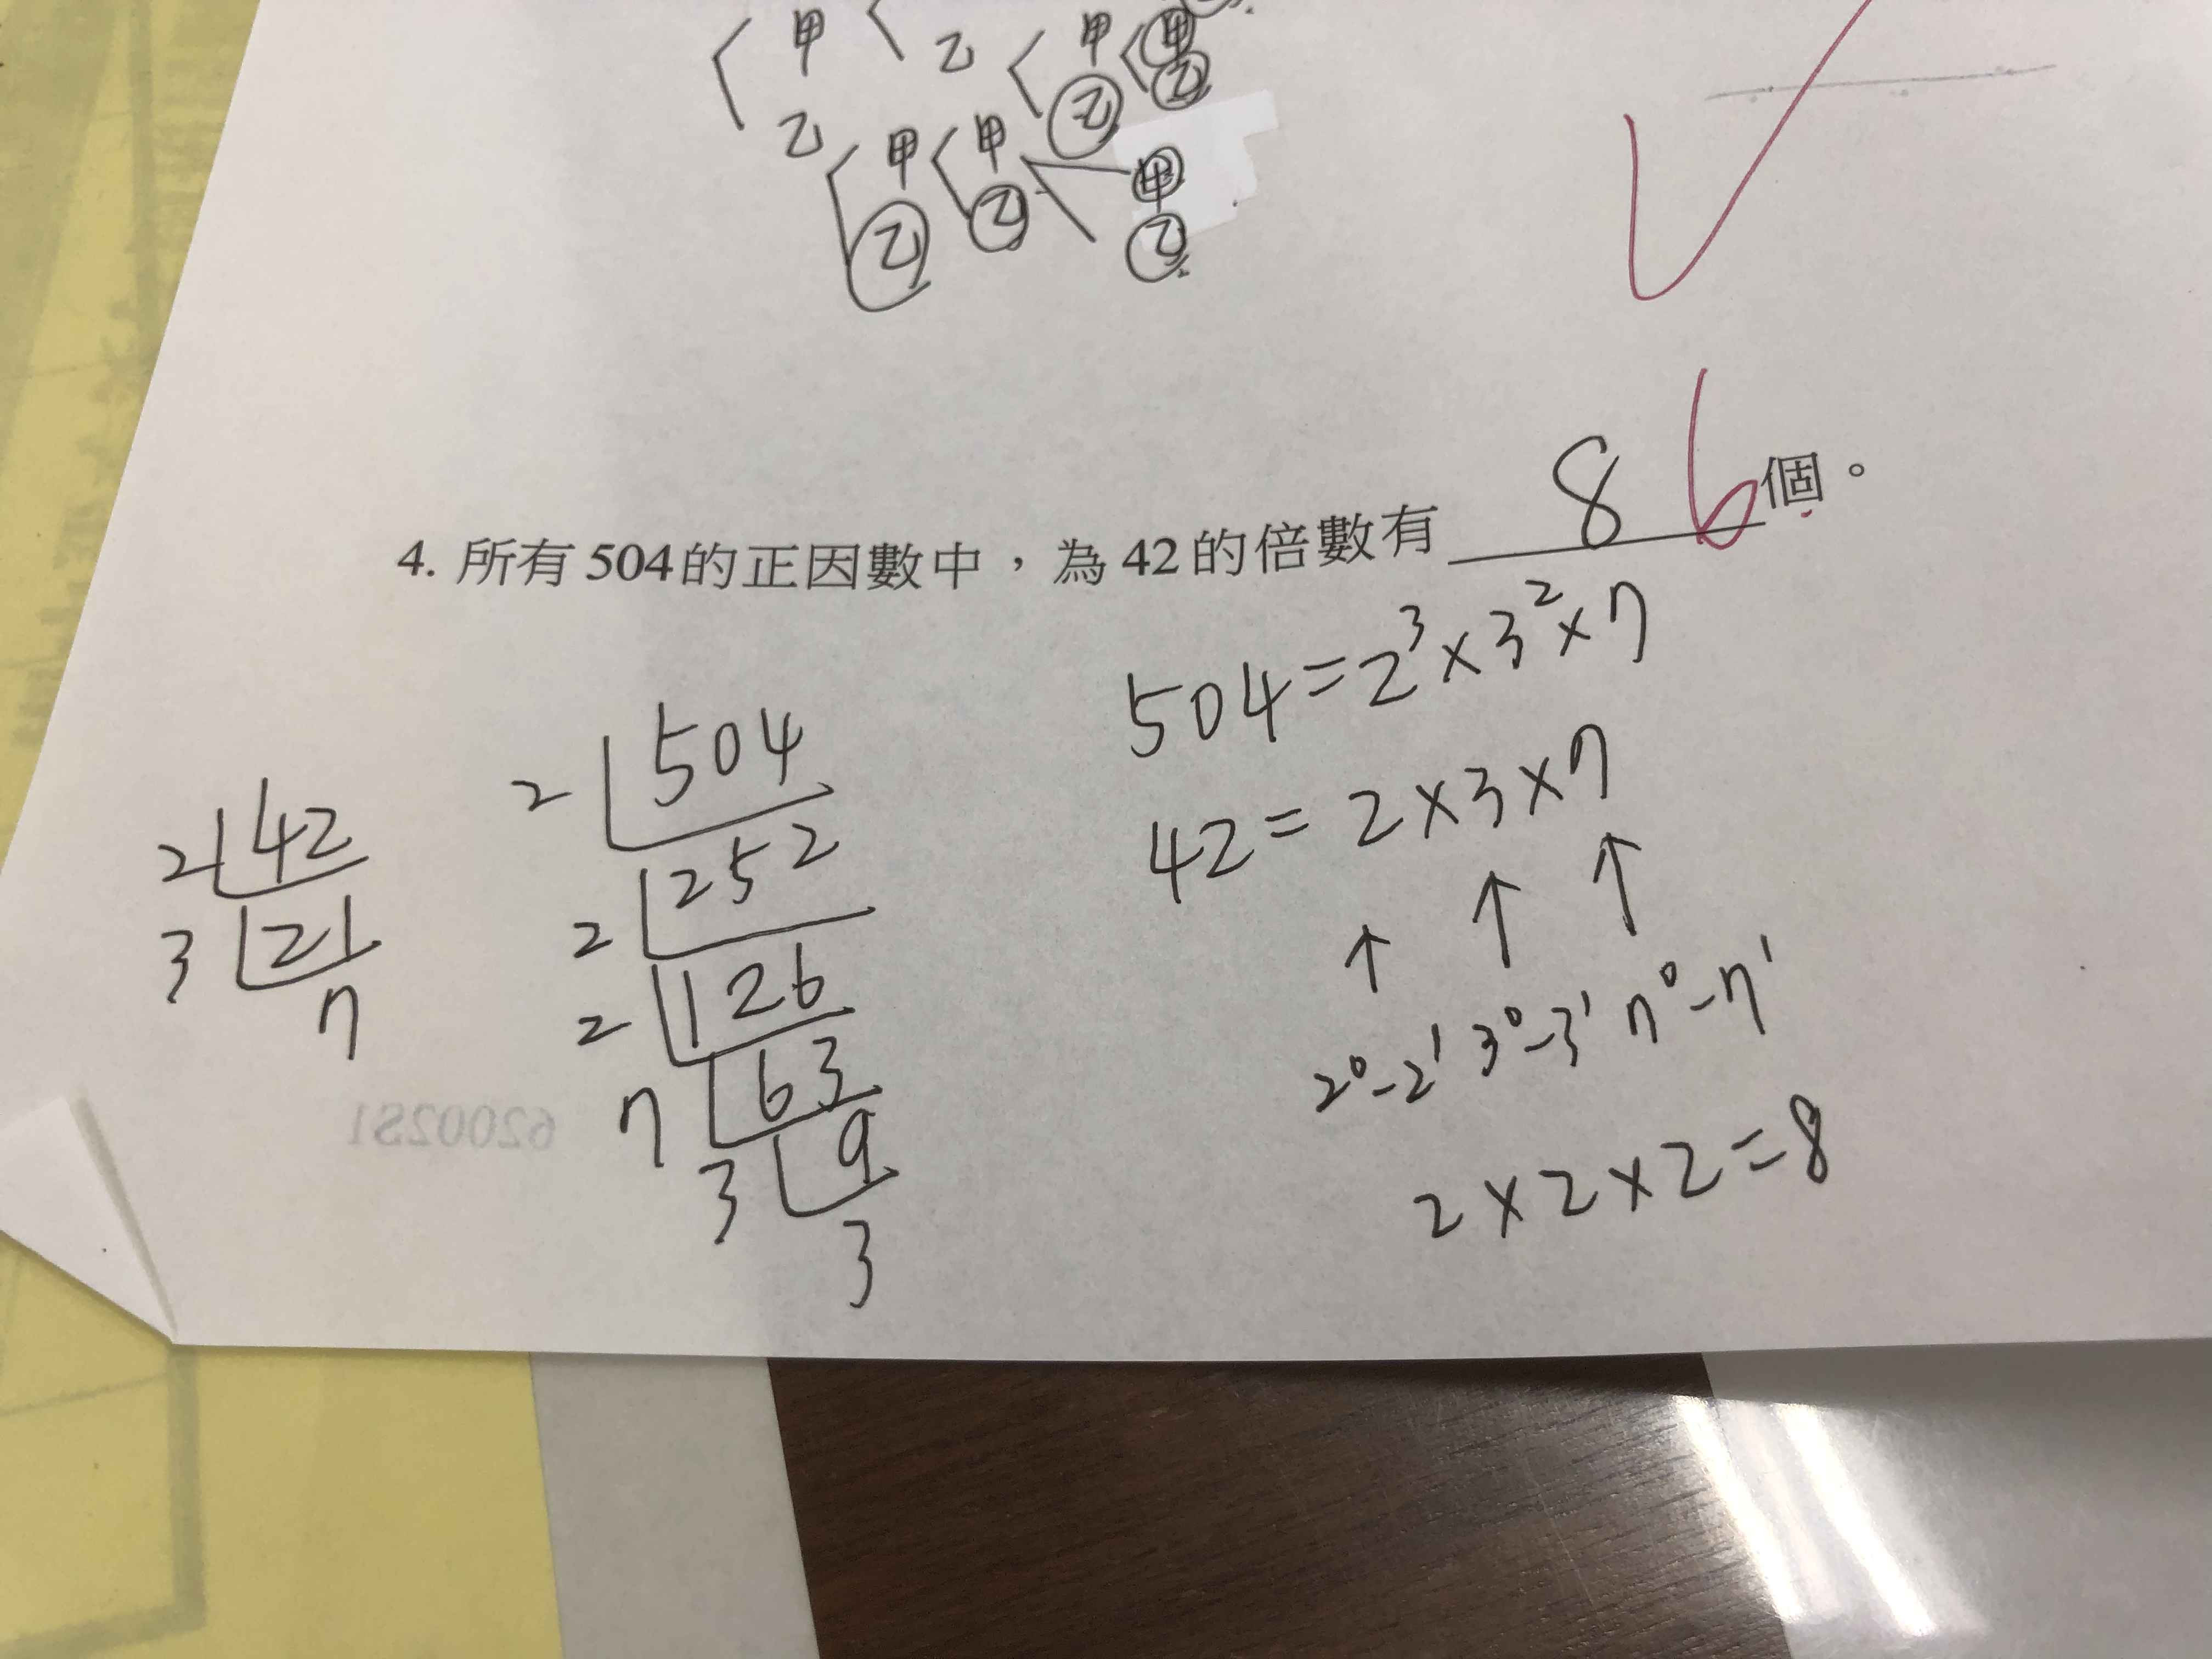 甲 甲 甲
乙 乙 乙
乙
甲 甲 甲
乙 乙 乙
4. 所有504的正因數中，為42的倍數有 8 6 個。
504=2³×3²×7
42=2×3×7
↑ ↑ ↑
2⁰-2¹ 3⁰-3¹ 7⁰-7¹
2×2×2=8
2 42
3 21
7
2 504
2 252
2 126
7 63
3 9
3
62002S1